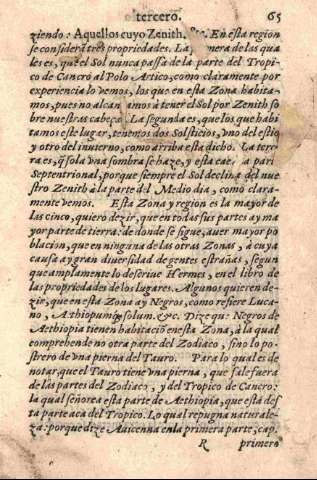 tercero. 65
ziendo: Aquellos cuyo Zenith, &c. En esta region
se considerã tres propriedades. La primera de las qua
les es, que el Sol nunca passa de la parte del Tropi-
co de Cancro al Polo Artico; como claramente por
experiencia lo vemos, los que en esta Zona habita-
mos, pues no alcançamos à tener el Sol por Zenith so
bre nuestras cabeças. La segunda es, que los que habi
tamos este lugar, tenemos dos Solsticios, vno del estio
y otro del inuierno, como arriba esta dicho. La terce
ra es, q̃ sola vna sombra se haze, y esta cae a la parte
Septentrional, porque siempre el Sol declina del nue
stro Zenith à la parte del Medio dia, como clara-
mente vemos. Esta Zona y region es la mayor de
las cinco, quiero dezir, que en todas sus partes ay ma
yor parte de tierra: de donde se sigue, auer mayor po
blacion, que en ninguna de las otras Zonas, à cuya
causa ay gran diuersidad de gentes estrañas, segun
que amplamente lo descriue Hermes, en el libro de
las propriedades de los lugares. Algunos quieren de-
zir, que en esta Zona ay Negros, como refiere Luca-
no, Æthiopumq̃ solum. &c. Dize q̃: Negros de
Aethiopia tienen habitaciõ en esta Zona, à la qual
comprehende no otra parte del Zodiaco, sino lo po-
strero de vna pierna del Tauro. Para lo qual es de
notar, que el Tauro tiene vna pierna, que sale fuera
de las partes del Zodiaco, y del Tropico de Cancro:
la qual señorea esta parte de Aethiopia, que està des
ta parte aca del Tropico. Lo qual repugna naturale-
za: porque dize Auicenna en la primera parte, cap.
R primero